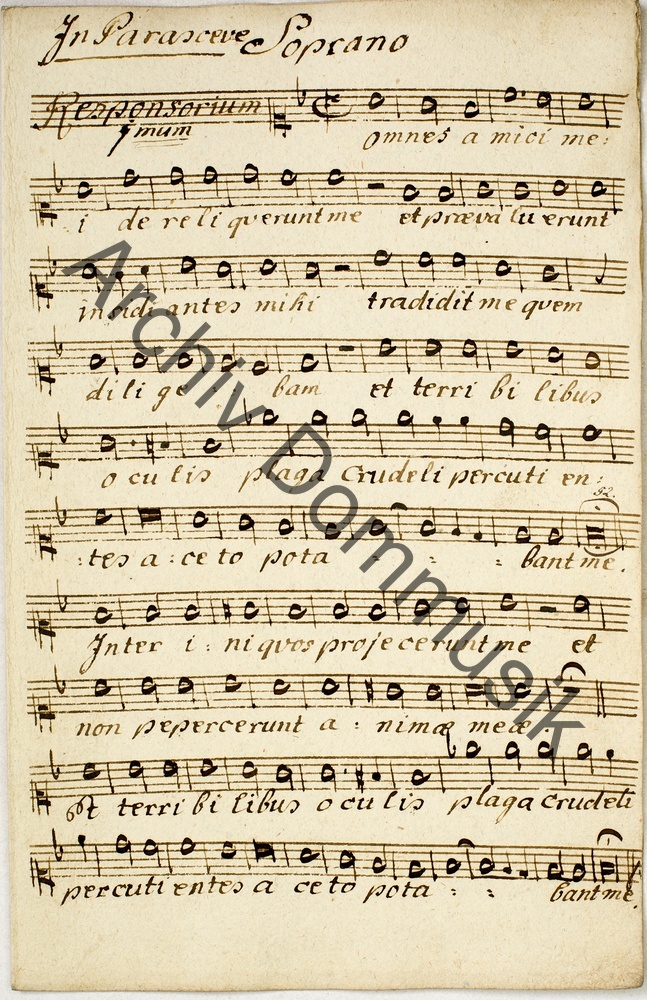 In Parasceve Soprano
Responsorium
1mum
omnes a mici me:
i de re li qverunt me et præva lu erunt
insidi antes mihi tradidit me qvem
di li ge bam et terri bi libus
o cu lis plaga crudeli percuti en:
92.
:tes a:ce to pota - - = bant me.
Inter i: ni qvos proje cerunt me et
non pepercerunt a: nimæ meæ.
Et terri bi libus o cu lis plaga crudeli
percuti entes a ce to pota : : bant me.
Archiv Dommusik